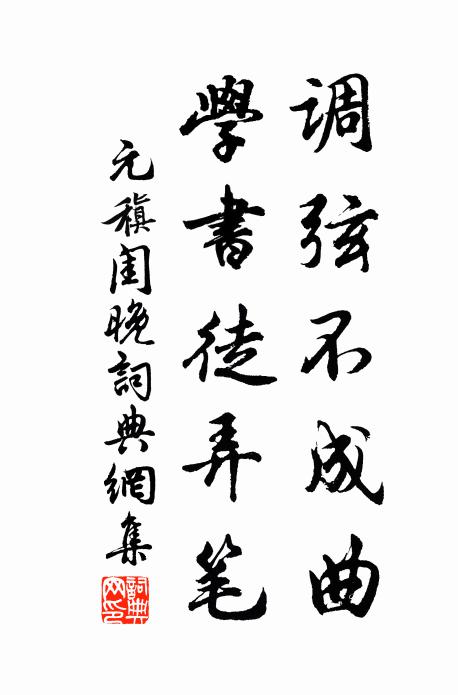 调弦不成曲
學書徒弄笔
元稹閨晚詞典網集
詞典網印